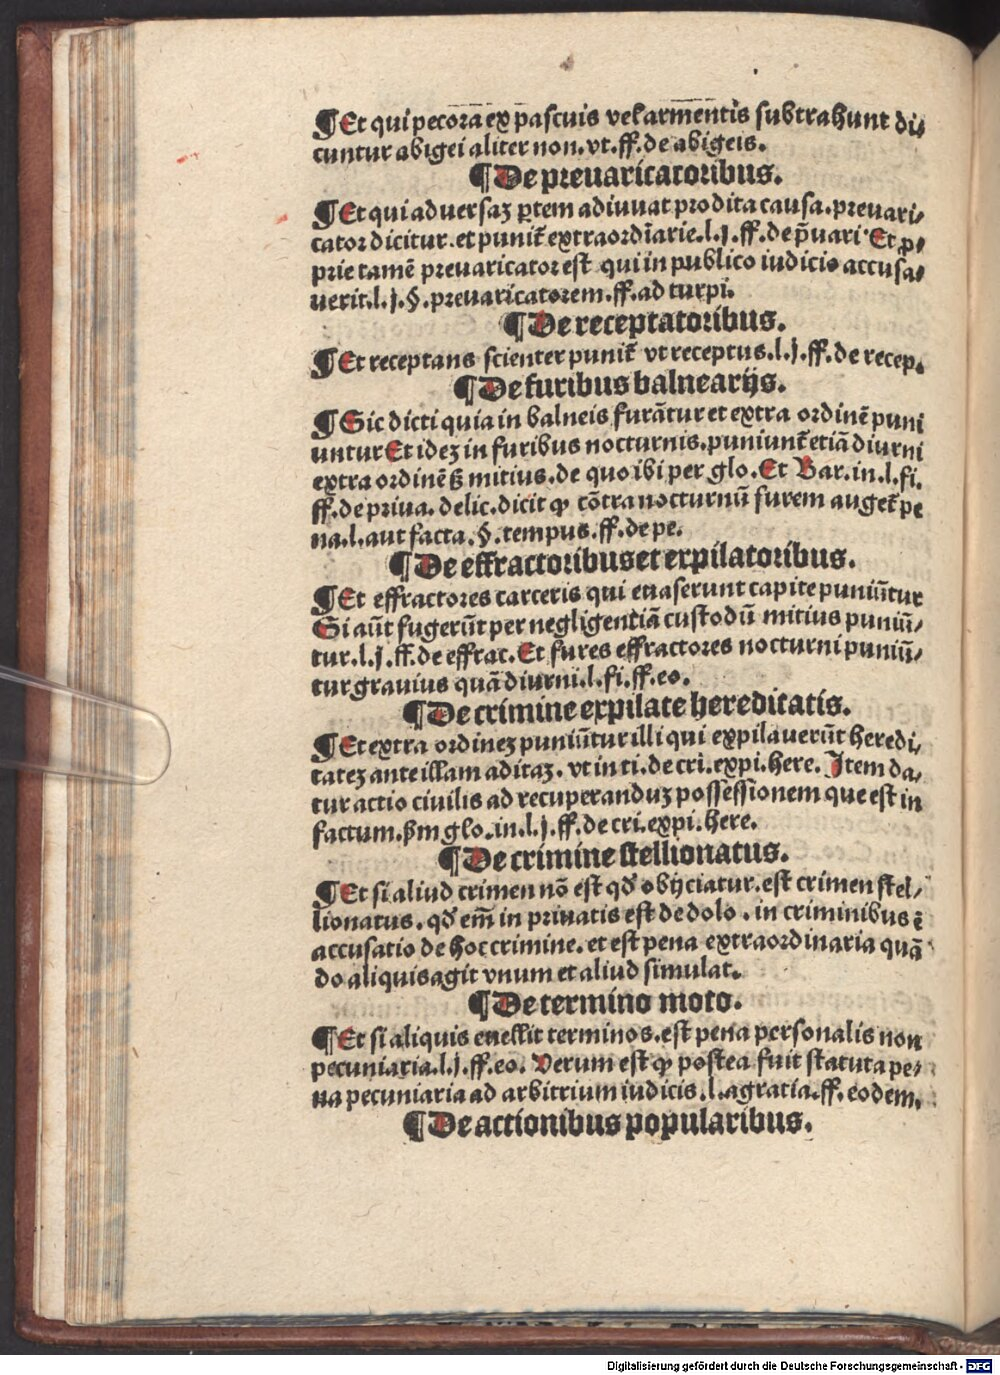 ¶Et qui pecora ex pascuis vel armentis subtrahunt di⸗
cuntur abigei aliter non. vt. ff. de abigeis.
¶De preuaricatoribus.
¶Et qui aduersaꝫ ꝑtem adiuuat prodita causa. preuari⸗
cator dicitur. et punit᷑ extraordīarie. l. j. ff. de p̄uari. Et ꝓ⸗
prie tamē preuaricator est qui in publico iudicio accusa⸗
uerit. l. j. §. preuaricatorem. ff. ad turpi.
¶De receptatoribus.
¶Et receptans scienter punit᷑ vt receptus. l. j. ff. de recep.
¶De furibus balnearijs.
¶Sic dicti quia in balneis furātur et extra ordinē puni
untur Et ideꝫ in furibus nocturnis. puniunt᷑ etiā diurni
extra ordinē sꝫ mitius. de quo ibi per glo. Et Bar. in. l. fi.
ff. de priua. delic. dicit ꝙ cōtra nocturnū furem auget᷑ pe
na. l. aut facta. §. tempus. ff. de pe.
¶De effractoribus et expilatoribus.
¶Et effractores carceris qui euaserunt capite puniūtur
Si aūt fugerūt per negligentiā custodū mitius puniū⸗
tur. l. j. ff. de effrac. Et fures effractores nocturni puniū⸗
tur grauius quā diurni. l. fi. ff. eo.
¶De crimine expilate hereditatis.
¶Et extra ordineꝫ puniūtur illi qui expilauerūt heredi⸗
tateꝫ ante illam aditaꝫ. vt in ti. de cri. expi. here. Item da⸗
tur actio ciuilis ad recuperanduꝫ possessionem que est in
factum. ẜm glo. in. l. j. ff. de cri. expi. here.
¶De crimine stellionatus.
¶Et si aliud crimen nō est qd̓ obijciatur. est crimen stel⸗
lionatus. qd̓ em̄ in priuatis est de dolo. in criminibus ē
accusatio de hoc crimine. et est pena extraordinaria quā
do aliquis agit vnum et aliud simulat.
¶De termino moto.
¶Et si aliquis euellit terminos. est pena personalis non
pecuniaria. l. j. ff. eo. Verum est ꝙ postea fuit statuta pe⸗
na pecuniaria ad arbitrium iudicis. l. agratia. ff. eodem.
¶De actionibus popularibus.
Digitalisierung gefördert durch die Deutsche Forschungsgemeinschaft - DFG